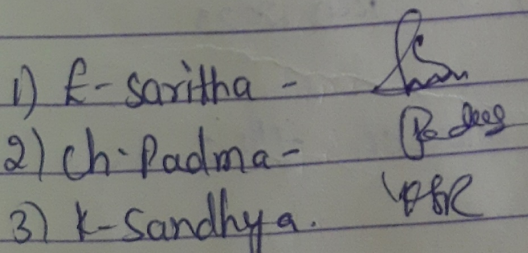 1) E-Saritha -
2) Ch. Padma -
3) K-Sandhya.